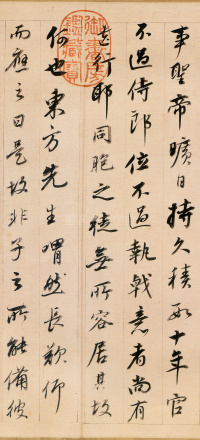 事聖帝曠日持久積數十年官
不過侍郎位不過執戟意者尚有
遺行耶同胞之徒無所容居其故
何也東方先生喟然長歎仰
而應之曰是故非子之所能備彼